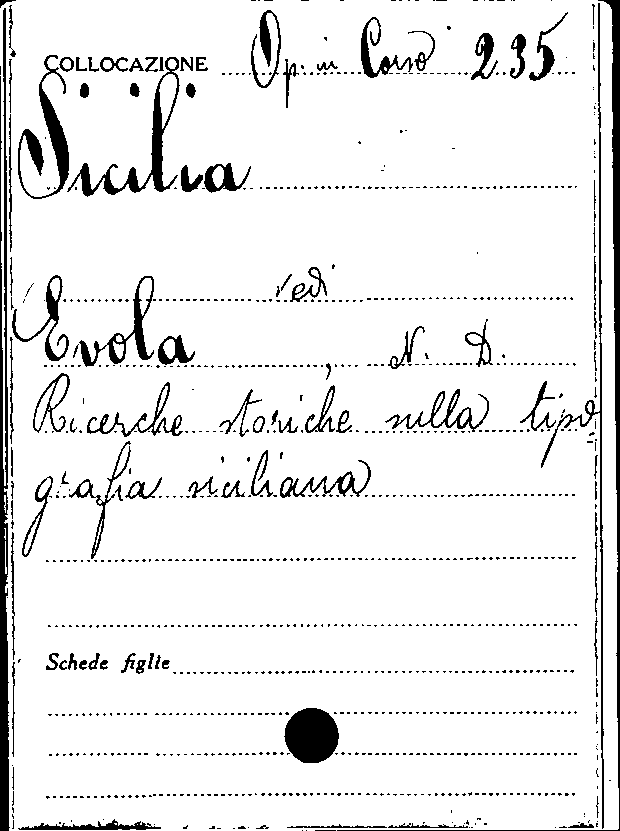 COLLOCAZIONE Op. in Corso 235
Sicilia
vedi
Evola, N. D.
Ricerche storiche sulla tipo=
grafia siciliana
Schede figlie